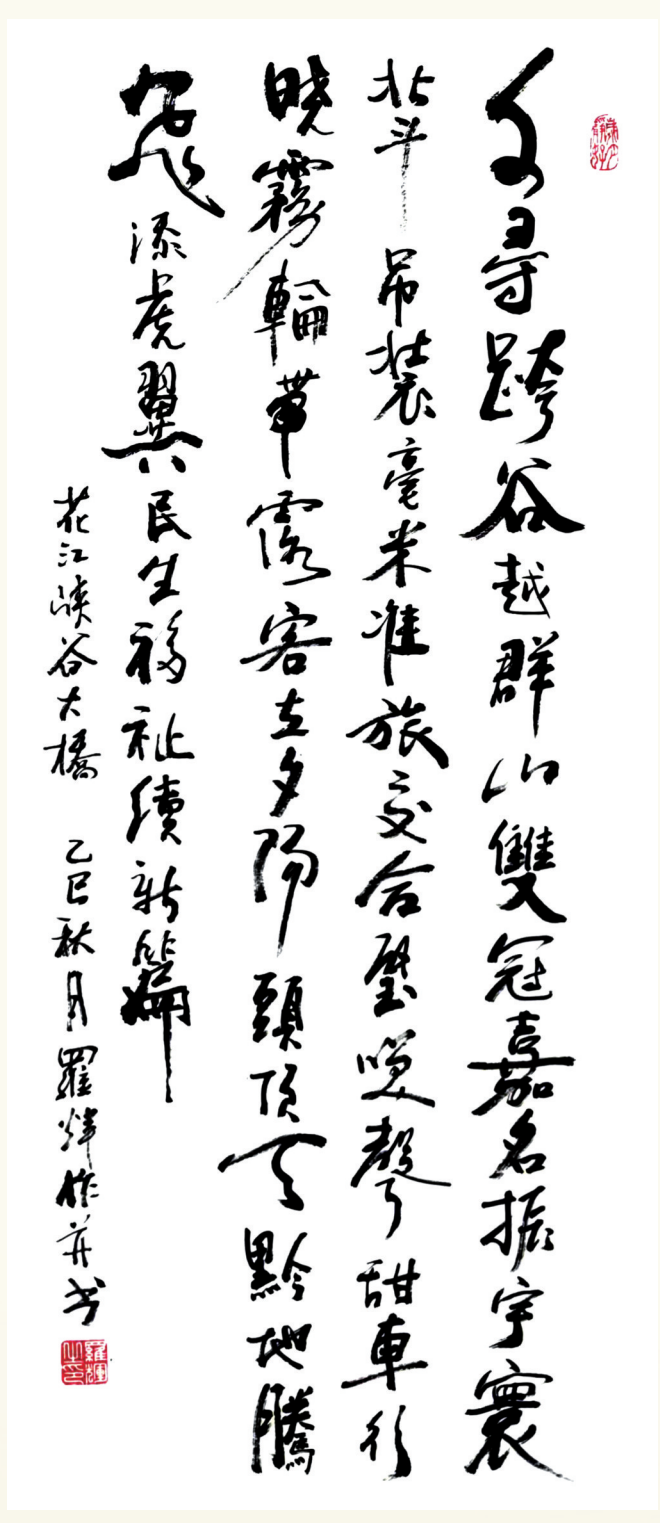 尋跨谷越群山雙冠嘉名振宇寰
北斗吊裝毫米准旅交合璧咲聲甜車行
曉霧輪帶露客立夕陽頭頂天黔地騰
飛添虎翼民生福祉續新篇
花江峽谷大橋 乙巳秋月羅煇作并书
羅輝之印